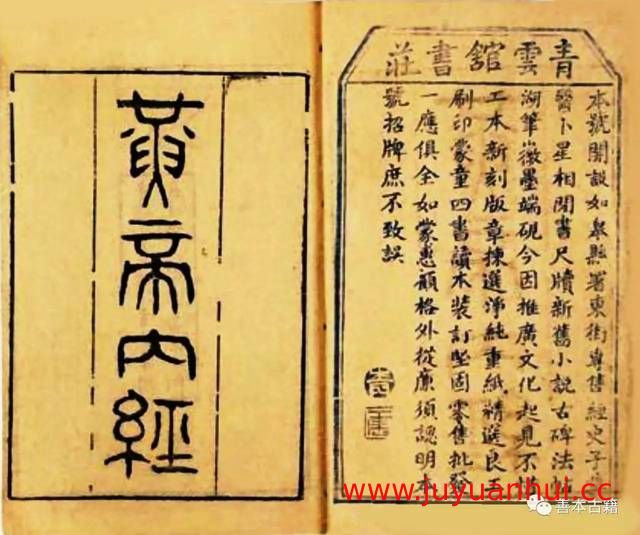 青雲舘書莊
本號開設如皋縣署東街專售經史子
醫卜星相閒書尺牘新舊小説古碑法帖
湖筆徽墨端硯今因推廣文化起見不
工本新刻版章揀選淨純重紙精選良工
刷印蒙童四書讀本裝訂堅固零售批發
一應俱全如蒙惠顧格外從廉須認明本
號招牌庶不致誤
黃帝內經
www.juyuanhui.cc
善本古籍